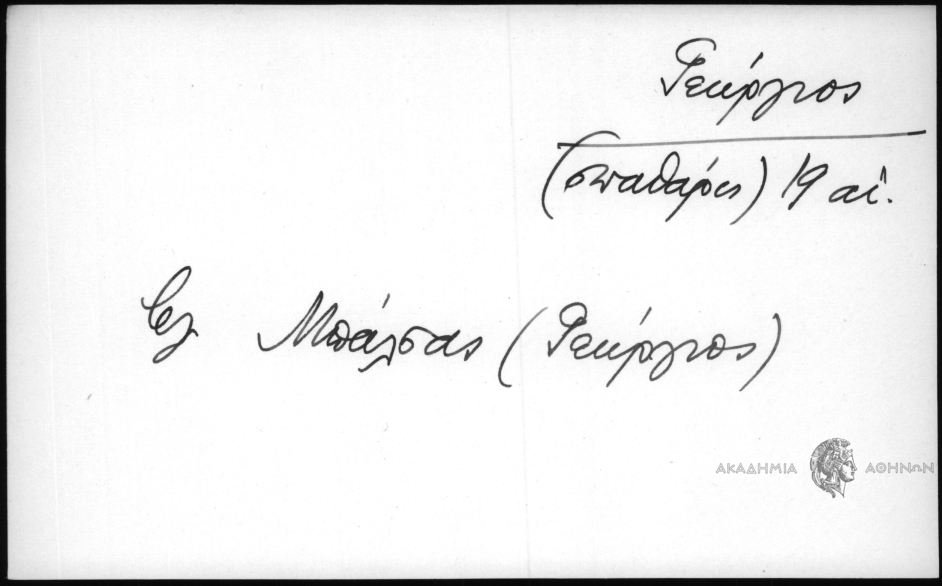 Γεώργιος
(σπαθάρης) 19 αἰ.
βλ Μπάλσας (Γεώργιος)
ΑΚΑΔΗΜΙΑ ΑΘΗΝΩΝ